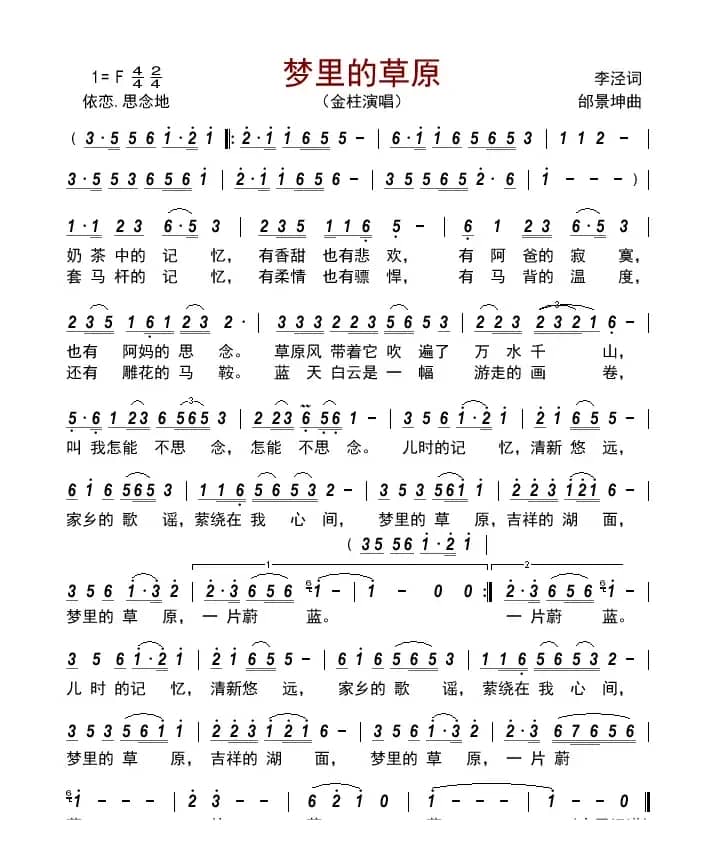 梦里的草原
1= F 4/4 2/4
李泾词
依恋.思念地
（金柱演唱）
邰景坤曲
( 3·5 5 6 i·2 i ‖: 2·i i 6 5 5 - | 6·i i 6 5 6 5 3 | 1 1 2 - |
3·5 5 3 6 5 6 i | 2·i i 6 5 6 - | 3 5 5 6 5 2·6 | i - - - )
1·1 2 3 6·5 3 | 2 3 5 1 1 6 5 - | 6 1 2 3 6·5 3 |
奶茶中的记忆，有香甜也有悲欢，有阿爸的寂寞，
套马杆的记忆，有柔情也有骠悍，有马背的温度，
2 3 5 1 6 1 2 3 2· | 3 3 3 2 2 3 5 6 5 3 | 2 2 3 3 2 2 1 6 - |
也有阿妈的思念。草原风带着它吹遍了万水千山，
还有雕花的马鞍。蓝天白云是一幅游走的画卷，
5·6 1 2 3 6 5 6 5 3 | 2 2 3 6 5 6 1 - | 3 5 6 i·2 i | 2 i 6 5 5 - |
叫我怎能不思念，怎能不思念。儿时的记忆，清新悠远，
6 i 6 5 6 5 3 | 1 1 6 5 6 5 3 2 - | 3 5 3 5 6 i i | 2 2 3 i 2 i 6 - |
家乡的歌谣，萦绕在我心间，梦里的草原，吉祥的湖面，
( 3 5 5 6 i·2 i |
3 5 6 i·3 2 | 2·3 6 5 6 i - | i - 0 0 :‖ 2·3 6 5 6 i - |
梦里的草原，一片蔚蓝。一片蔚蓝。
3 5 6 i·2 i | 2 i 6 5 5 - | 6 i 6 5 6 5 3 | 1 1 6 5 6 5 3 2 - |
儿时的记忆，清新悠远，家乡的歌谣，萦绕在我心间，
3 5 3 5 6 i i | 2 2 3 i 2 i 6 - | 3 5 6 i·3 2 | 2·3 6 7 6 5 6 |
梦里的草原，吉祥的湖面，梦里的草原，一片蔚
i - - - | 2 3 - - | 6 2 i 0 | i - - - | i - - 0 ‖